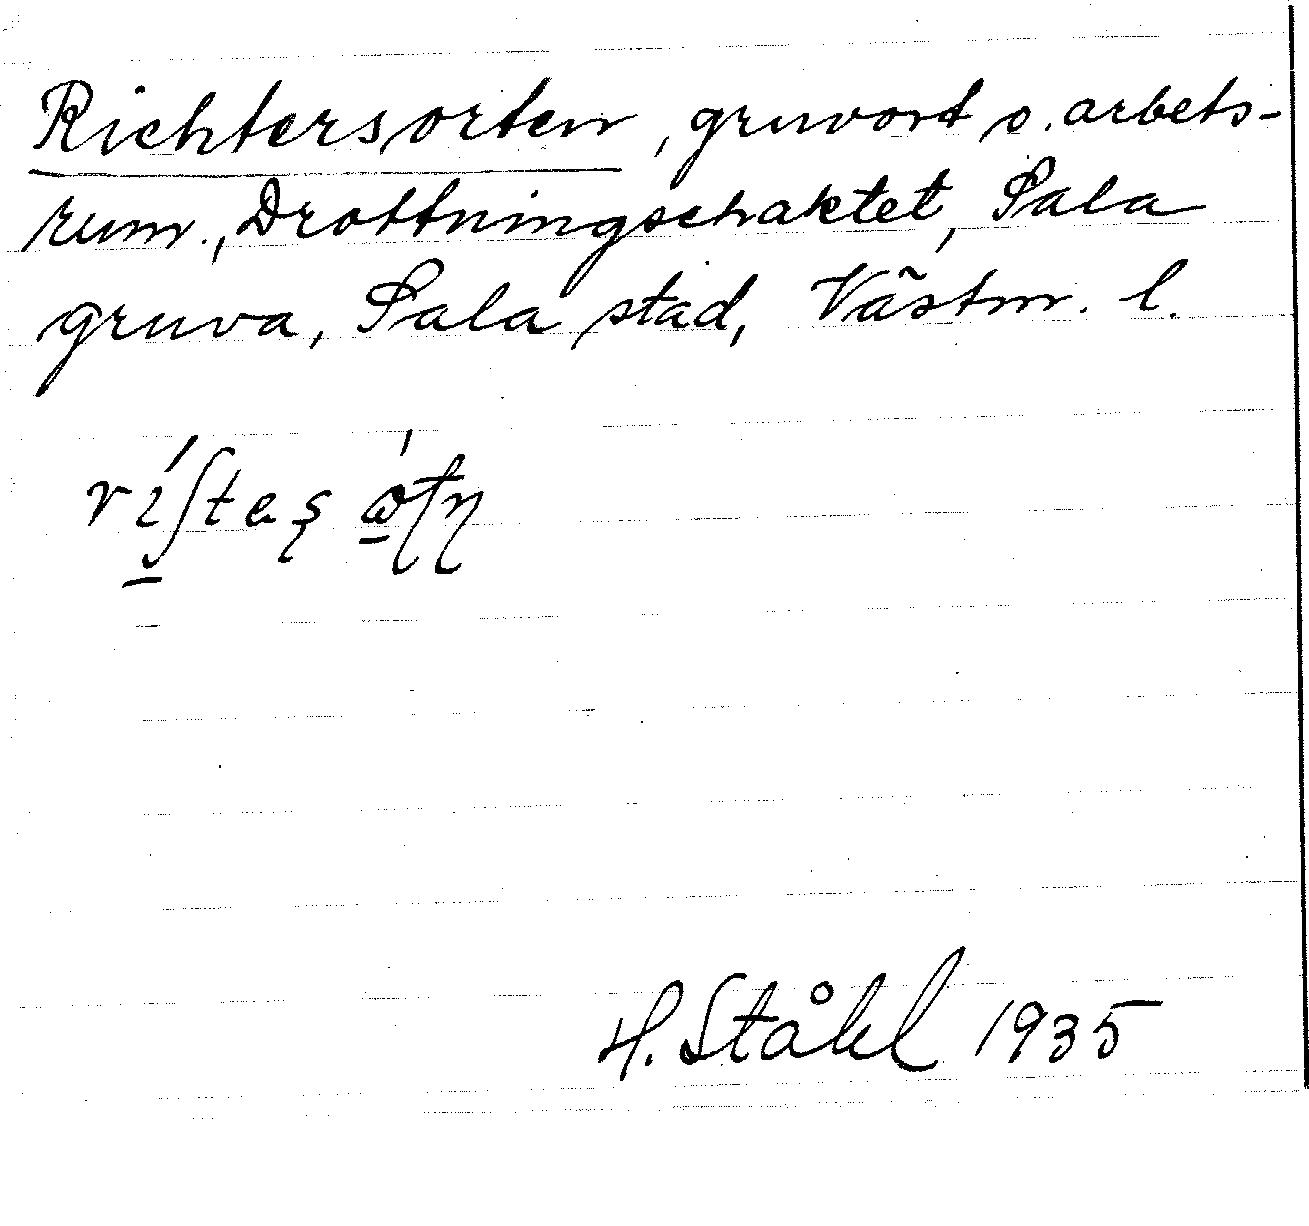 Richtersorten, gruvort o. arbets-
rum, Drottningschaktet, Sala
gruva, Sala stad, Västm. l.
H. Ståhl 1935